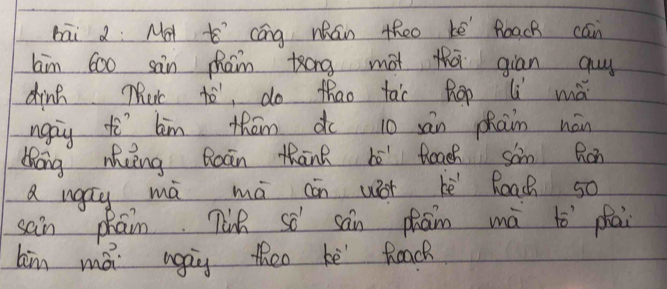 Bài 2: Một tổ công nhân theo kế hoạch cần
làm 600 sản phẩm trong một thời gian quy
định. Thực tế, do thao tác hợp lí mỗi
ngày tổ làm thêm đc 10 sản phẩm nên
không những hoàn thành kế hoạch sớm hơn
2 ngày mà mà còn vượt kế hoạch 50
sản phẩm. Tính số sản phẩm mà tổ phải
làm mỗi ngày theo kế hoạch